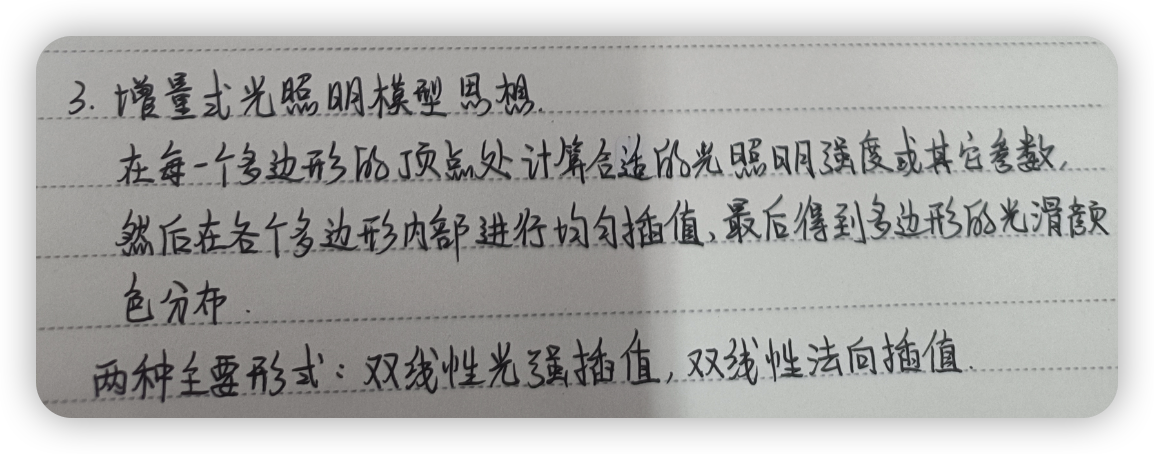 3. 增量式光照明模型思想.
在每一个多边形的顶点处计算合适的光照明强度或其它参数,
然后在各个多边形内部进行均匀插值,最后得到多边形的光滑颜
色分布.
两种主要形式:双线性光强插值,双线性法向插值.